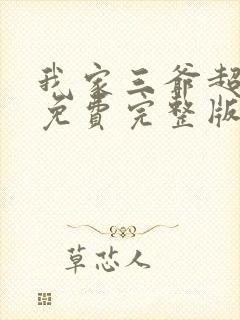 我家三爷超
免費完整版
草芯人